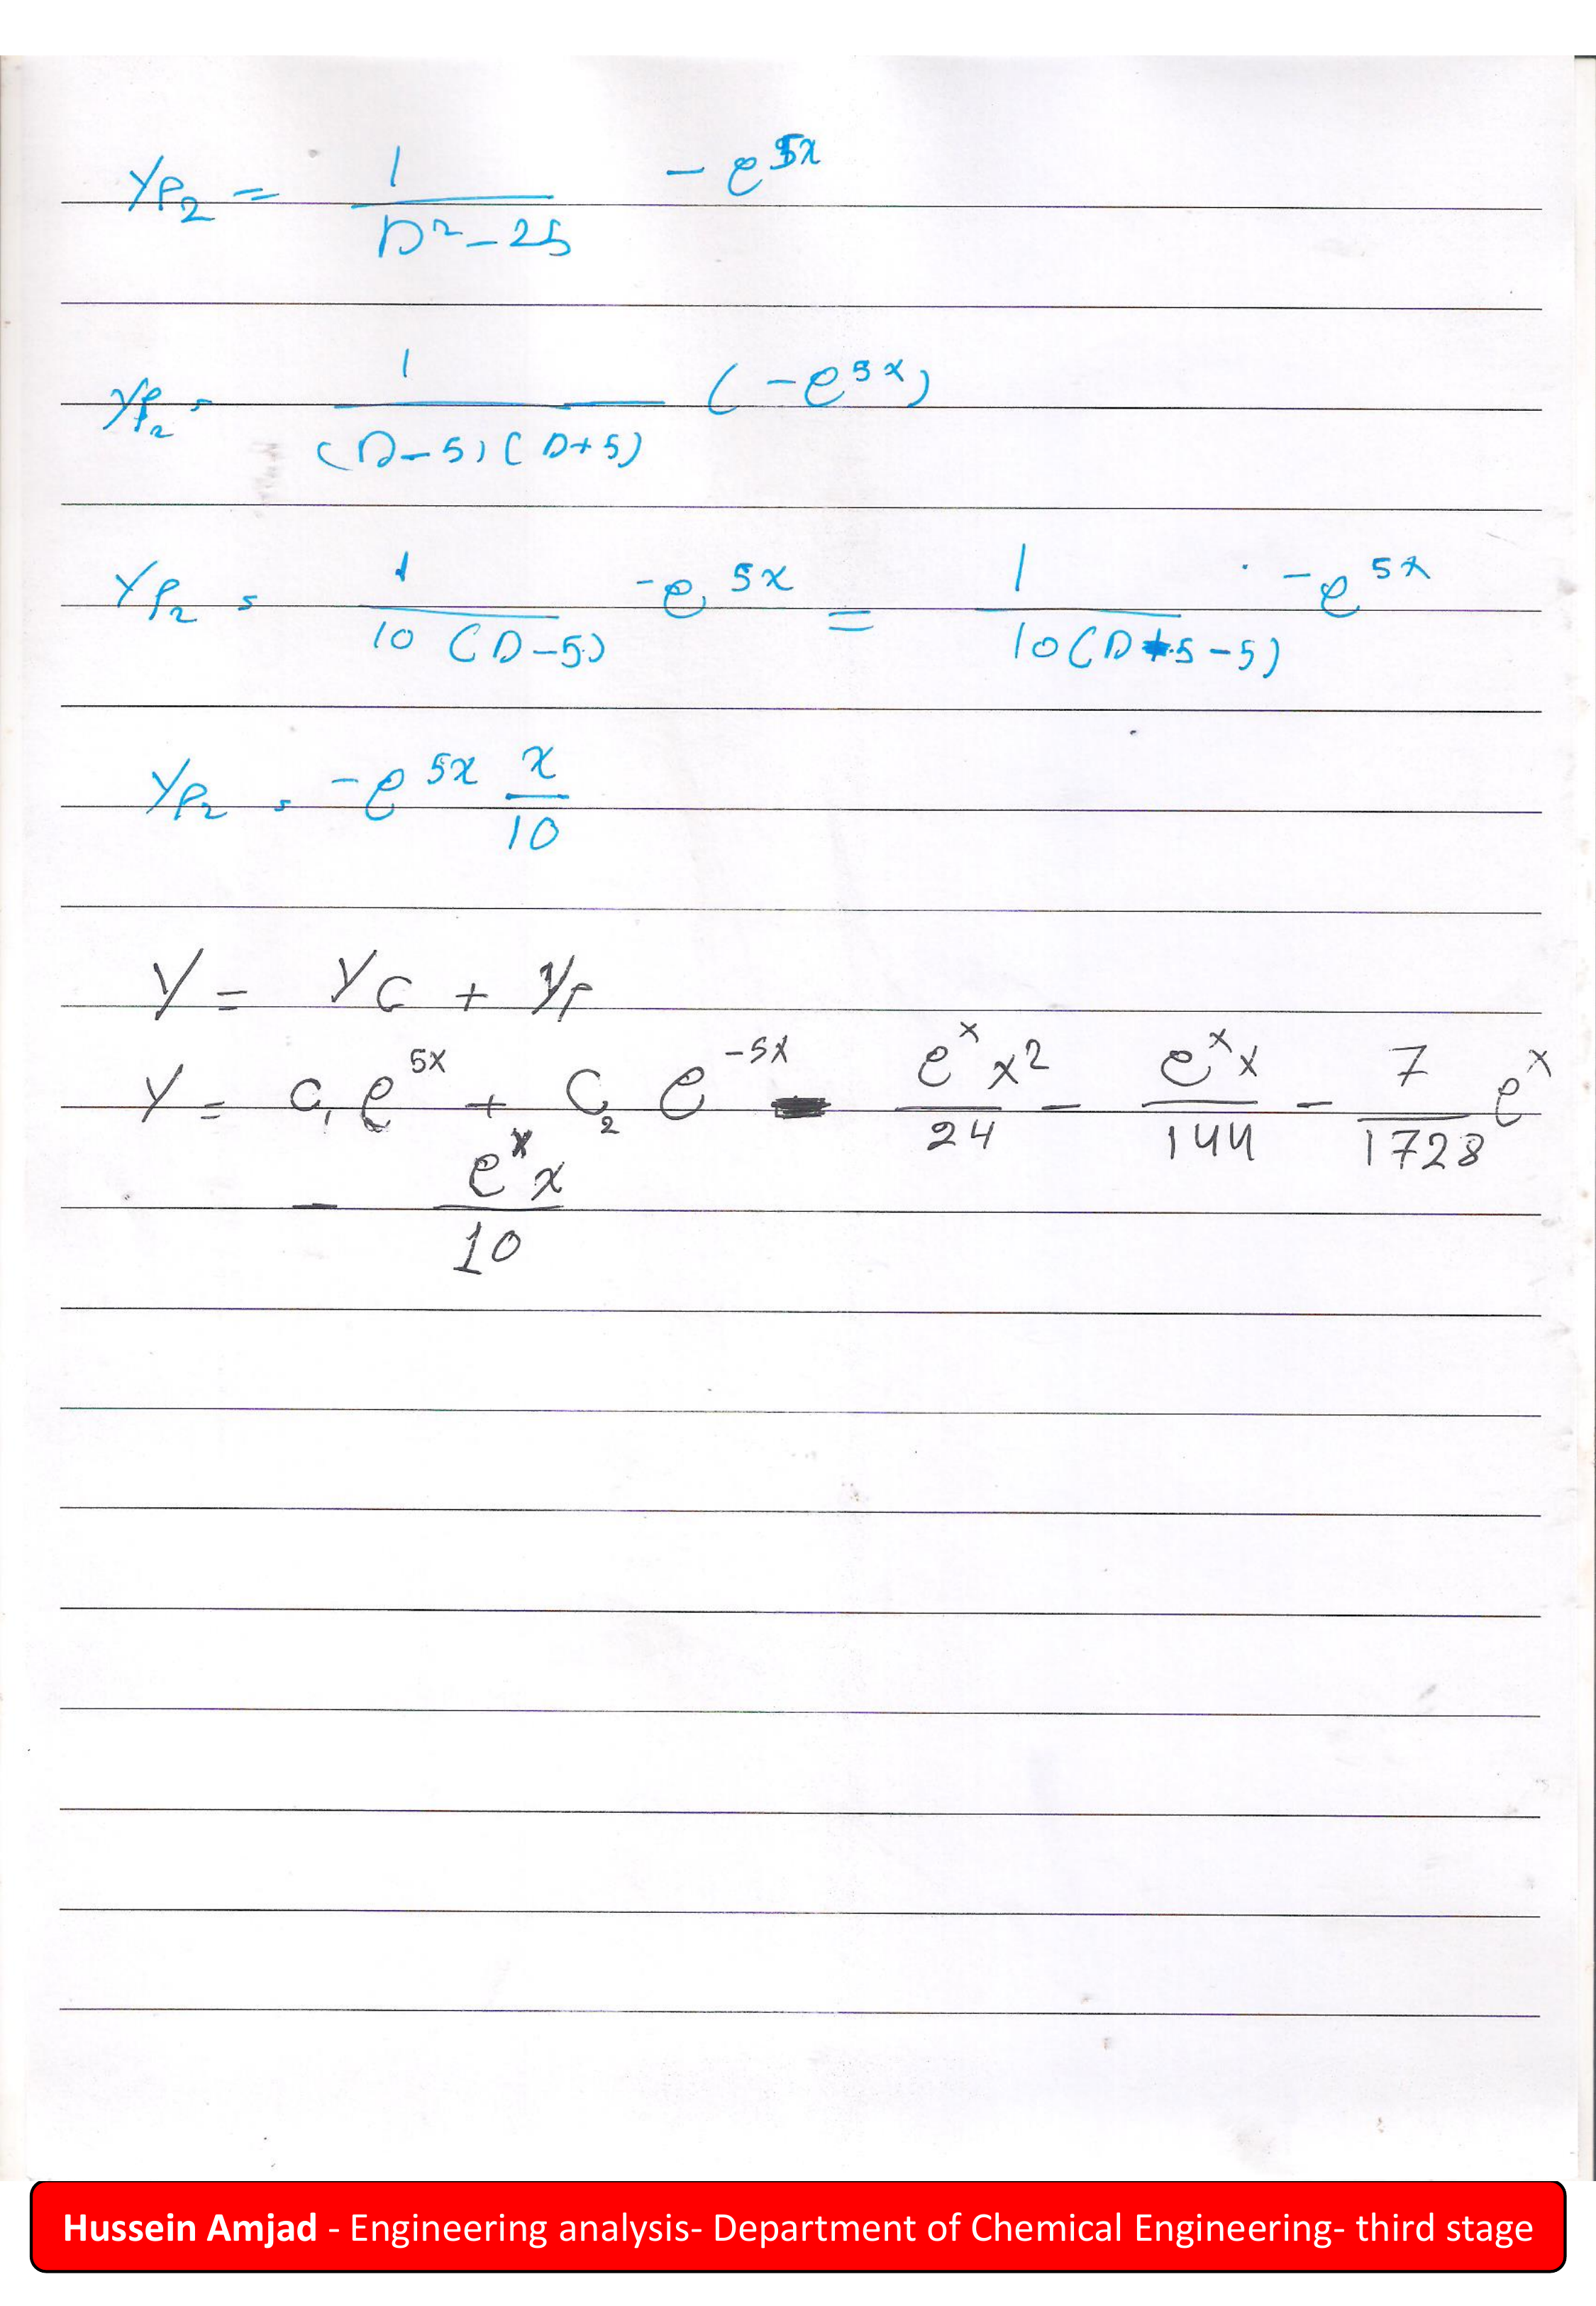 yp₂ = 1/(D² - 25) - e^5x
yp₂ = 1/((D - 5)(D + 5)) (-e^5x)
yp₂ = 1/(10 (D - 5)) -e^5x = 1/(10(D + 5 - 5)) · -e^5x
yp₂ = -e^5x x/10
y = yc + yp
y = c₁ e^5x + c₂ e^-5x - e^x x²/24 - e^x x/144 - 7/1728 e^x
- e^x x/10
Hussein Amjad - Engineering analysis- Department of Chemical Engineering- third stage